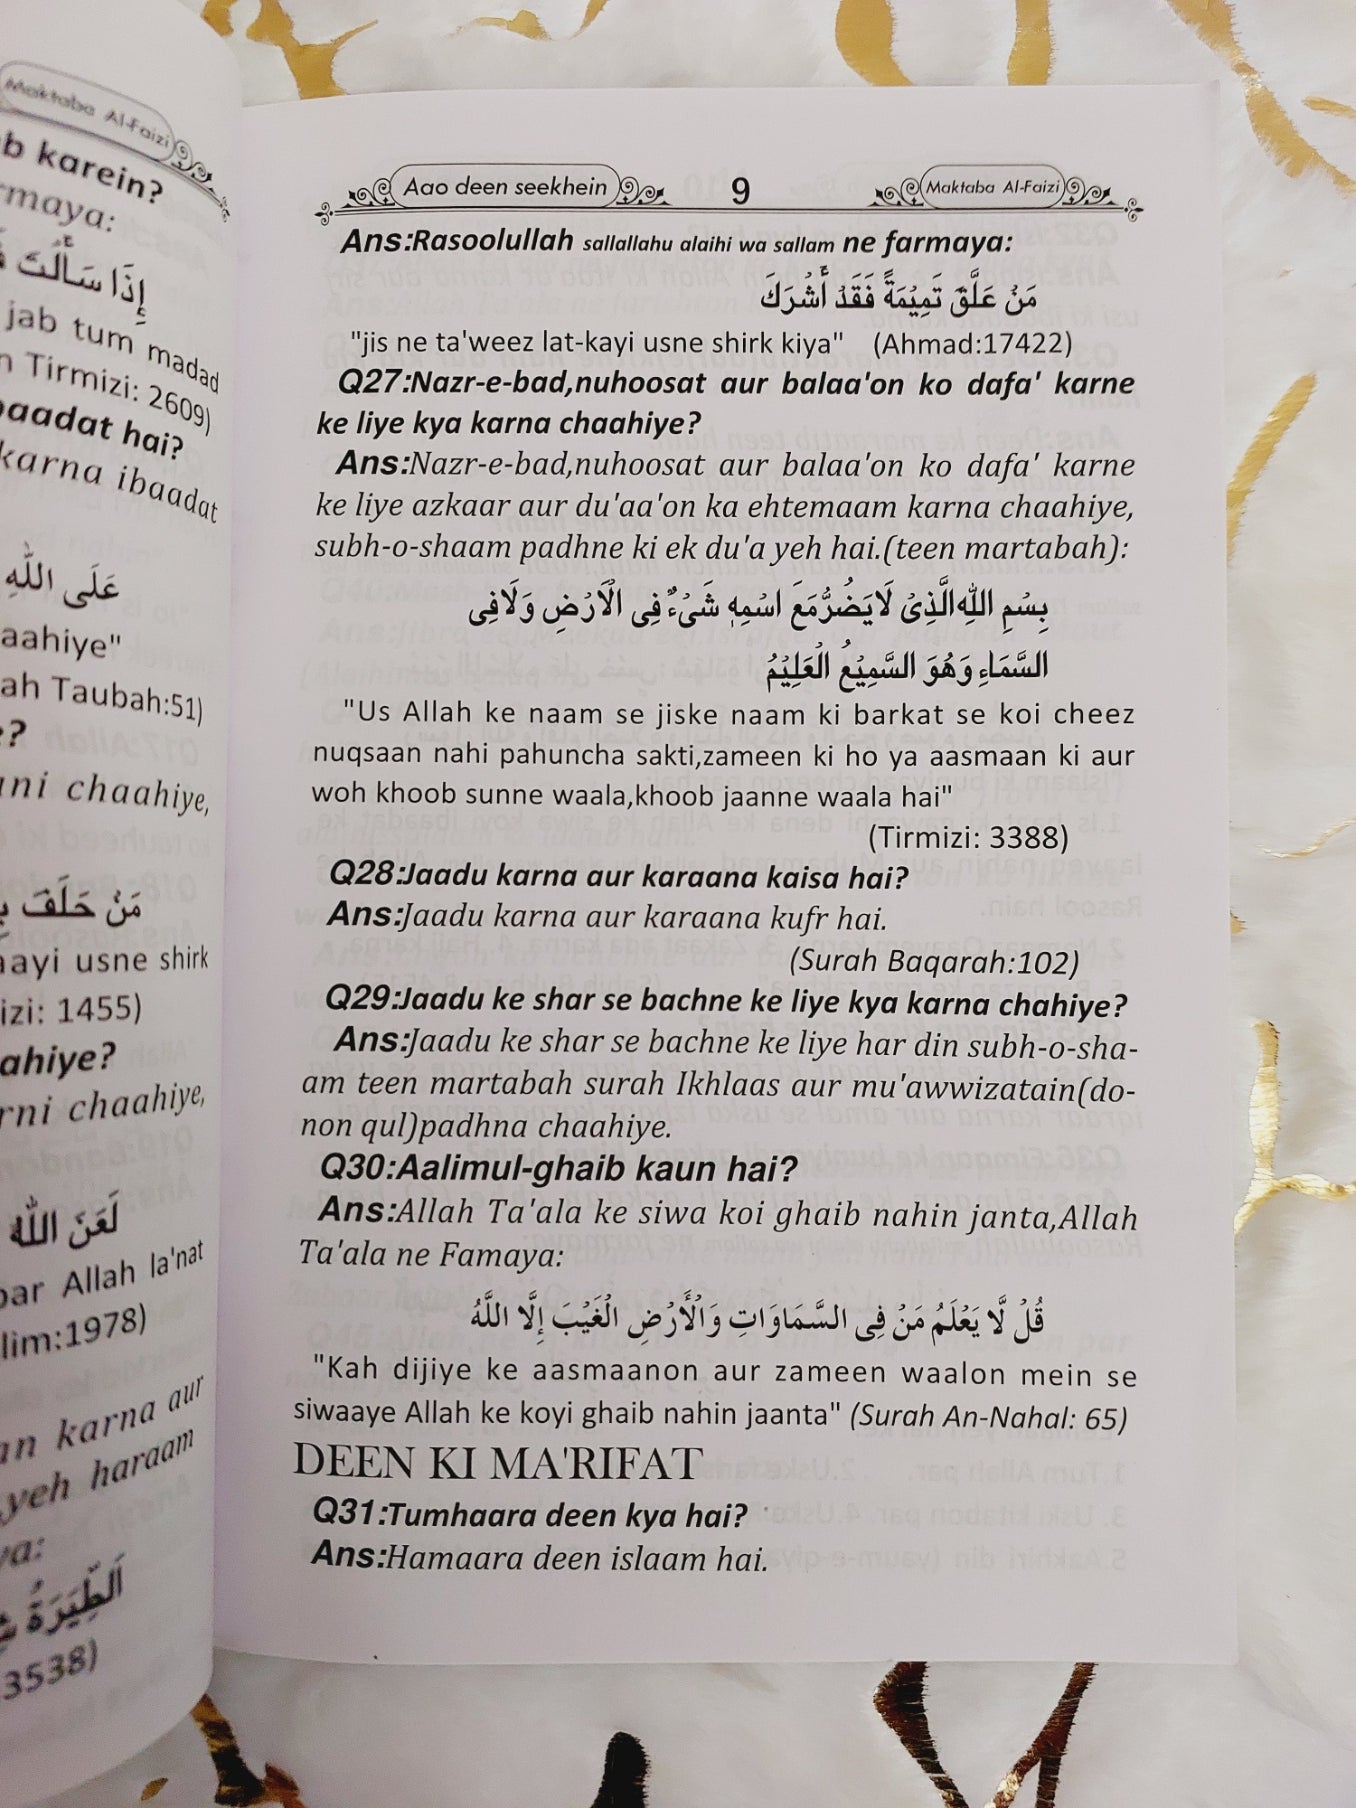 Maktaba Al-Faizi
b karein?
rmaya:
إِذَا سَأَلْتَ
jab tum madad
Tirmizi: 2609)
baadat hai?
karna ibaadat
عَلَى اللّٰهِ
aahiye"
ah Taubah:51)
?
ni chaahiye,
مَنْ حَلَفَ
aayi usne shirk
izi: 1455)
ahiye?
rni chaahiye,
لَعَنَ اللّٰهُ
par Allah la'nat
lim:1978)
an karna aur
yeh haraam
ya:
اَلطِّيَرَةُ
3538)
Aao deen seekhein 9 Maktaba Al-Faizi
Ans:Rasoolullah sallallahu alaihi wa sallam ne farmaya:
مَنْ عَلَّقَ تَمِيْمَةً فَقَدْ أَشْرَكَ
"jis ne ta'weez lat-kayi usne shirk kiya" (Ahmad:17422)
Q27:Nazr-e-bad,nuhoosat aur balaa'on ko dafa' karne
ke liye kya karna chaahiye?
Ans:Nazr-e-bad,nuhoosat aur balaa'on ko dafa' karne
ke liye azkaar aur du'aa'on ka ehtemaam karna chaahiye,
subh-o-shaam padhne ki ek du'a yeh hai.(teen martabah):
بِسْمِ اللّٰهِ الَّذِىْ لَايَضُرُّمَعَ اسْمِهٖ شَىْءٌ فِى الْاَرْضِ وَلَافِى
السَّمَاءِ وَهُوَ السَّمِيْعُ الْعَلِيْمُ
"Us Allah ke naam se jiske naam ki barkat se koi cheez
nuqsaan nahi pahuncha sakti,zameen ki ho ya aasmaan ki aur
woh khoob sunne waala,khoob jaanne waala hai"
(Tirmizi: 3388)
Q28:Jaadu karna aur karaana kaisa hai?
Ans:Jaadu karna aur karaana kufr hai.
(Surah Baqarah:102)
Q29:Jaadu ke shar se bachne ke liye kya karna chahiye?
Ans:Jaadu ke shar se bachne ke liye har din subh-o-sha-
am teen martabah surah Ikhlaas aur mu'awwizatain(do-
non qul)padhna chaahiye.
Q30:Aalimul-ghaib kaun hai?
Ans:Allah Ta'ala ke siwa koi ghaib nahin janta,Allah
Ta'ala ne Famaya:
قُلْ لَّا يَعْلَمُ مَنْ فِى السَّمَاوَاتِ وَالْأَرْضِ الْغَيْبَ إِلَّا اللَّهُ
"Kah dijiye ke aasmaanon aur zameen waalon mein se
siwaaye Allah ke koyi ghaib nahin jaanta" (Surah An-Nahal: 65)
DEEN KI MA'RIFAT
Q31:Tumhaara deen kya hai?
Ans:Hamaara deen islaam hai.